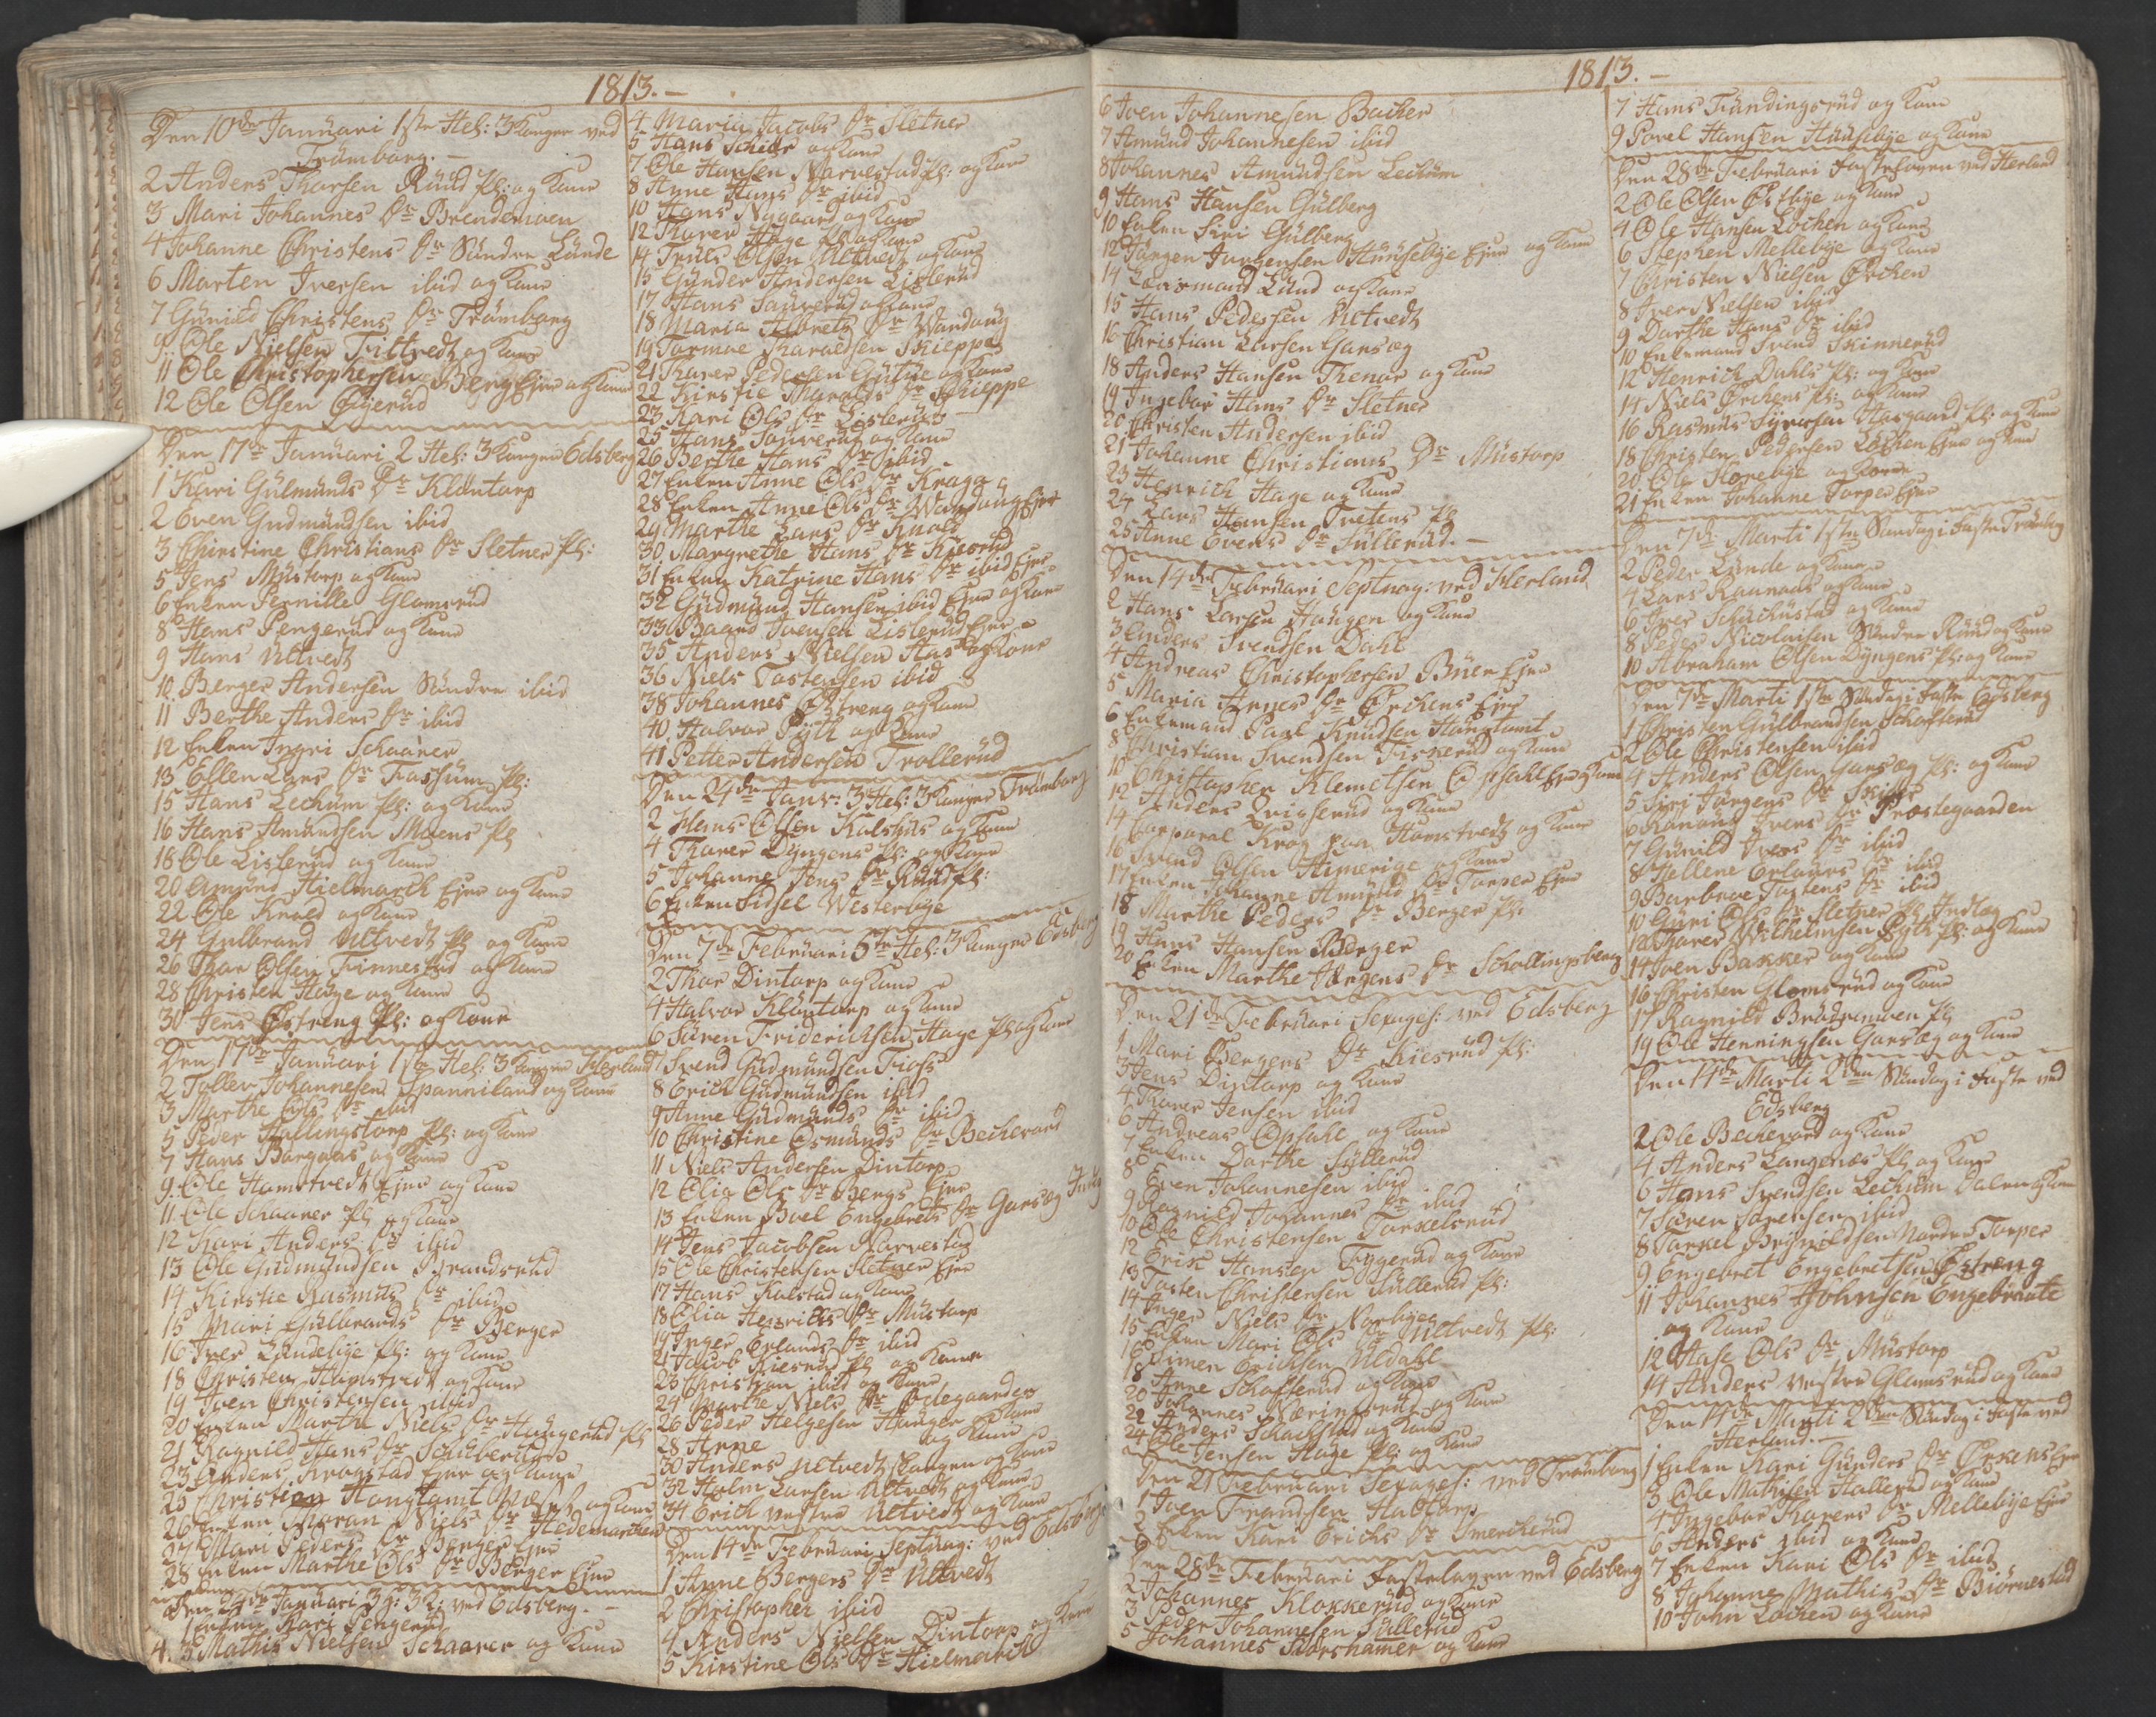 1813.-
Den 10de Januari 1ste Hel: 3 Konger ved
Trømborg.-
2 Anders Thorsen Ruud Pl: og Kone
3 Mari Johannes Dr Brendemoen
4 Johanne Christens Dr Søndre Lunde
6 Morten Iversen ibid og Kone
7 Gunild Christens Dr Trømborg
9 Ole Nielsen Tiltvedt og Kone
11 Ole Christophersen Berg Ejer og Kone
12 Ole Olsen Øyerud
Den 17de Januari 2 Hel: 3 Konger Edsberg
1 Kari Gulmunds Dr Klontorp
2 Even Gudmundsen ibid
3 Christine Christians Dr Sletner Pl:
5 Jens Mustorp og Kone
6 Enken Pernille Glomsrud
8 Hans Pengerud og Kone
9 Hans Ultvedt
10 Berger Andersen Søndre ibid
11 Berthe Anders Dr ibid
12 Enken Ingri Schaarer
13 Ellen Lars Dr Fossum Pl:
15 Hans Lechum Pl: og Kone
16 Hans Amundsen Moens Pl
18 Ole Lislerud og Kone
20 Amund Hielmarck Ejer og Kone
22 Ole Knold og Kone
24 Gulbrand Ultvedt Pl og Kone
26 Thor Olsen Finnestad og Kone
28 Christen Hage og Kone
30 Jens Østreng Pl: og Kone
Den 17de Januari 1ste Hel: 3 Konger Herland
2 Tollev Johannesen Spanniland og Kone
3 Marthe Ols Dr ibid
5 Peder Hallingstorp Pl: og Kone
7 Hans Borgaas og Kone
9 Ole Hamstvedt Ejer og Kone
11 Ole Schaarer Pl og Kone
12 Kari Anders Dr ibid
13 Ole Gudmundsen Brandsrud
14 Kirstie Rasmus Dr ibid
15 Mari Gulbrands Dr Berger
16 Iver Lundebye Pl: og Kone
18 Christen Hamstvedt og Kone
19 Iver Christensen ibid
20 Enken Marthe Niels Dr Haugerud Pl
21 Ragnild Hans Dr
23 Anders Krogstad Ejer og Kone
25 Christian Hongtomt og Kone
26 Enken Maren Niels Dr Hedemarchen
27 Mari Peders Dr Berger Ejer
28 Enken Marthe Ols Dr Berger Ejer
Den 24de Januari 3 S: 3 K: ved Edsberg.-
1 Enken Kari Pengerud
3 Mathis Nielsen Schaarer og Kone
4 Maria Jacobs Dr Sletner
5 Hans Schier og Kone
7 Ole Hansen Narvestad Pl: og Kone
8 Anne Hans Dr ibid
10 Hans Nygaard og Kone
12 Thorer Hage Pl og Kone
14 Truls Olsen Ultvedt og Kone
15 Gunder Andersen Lislerud
17 Hans Saxerud og Kone
18 Maria Albrets Dr Wandaug
19 Tormoe Tharaldsen Skieppe
21 Thorer Pedersen Gutue og Kone
22 Kirstie Haralds Dr Schieppe
23 Kari Ols Dr Lislerud
25 Hans Saxerud og Kone
26 Berthe Hans Dr ibid
27 Enken Anne Ols Dr Kragg
28 Enken Anne Ols Dr Wandaug Ejer
29 Marthe Lars Dr Knold
30 Margrethe Hans Dr Kiesrud
31 Enken Katrine Hans Dr ibid Ejer
32 Gudmund Hansen ibid Ejer og Kone
33 Baard Ivensen Lislerud Ejer
35 Anders Nielsen Aas og Kone
36 Niels Tostensen ibid
38 Johannes Østreng og Kone
40 Halvor Pylt og Kone
41 Petter Andersen Trollerud
Den 24de Janv: 3 Hel: 3 Konger Trømborg
2 Hans Olsen Kalshus og Kone
4 Thorer Dyngens Pl: og Kone
5 Johanne Jens Dr Ruud Pl:
6 Enken Sidsel Westerbye
Den 7de Februari 5te Hel: 3 Konger Edsberg
2 Thor Dintorp og Kone
4 Halvor Klontorp og Kone
6 Søren Friderichsen Hage Pl og Kone
7 Svend Gudmundsen Fioss
8 Erich Gudmundsen ibid
9 Anne Gudmunds Dr ibid
10 Christine Osmunds Dr Bechevard
11 Niels Andersen Dintorp
12 Olia Ols Dr Bergs Ejer
13 Enken Boel Engebrets Dr Garseg
14 Jens Jacobsen Narvestad
15 Ole Christensen Sletner Ejer
17 Hans Kalstad og Kone
18 Olia Henrichs Dr Mustorp
19 Inger Erlands Dr ibid
21 Jacob Kiesrud Pl og Kone
23 Christian ibid og Kone
24 Marthe Niels Dr Prestegaarden
26 Peder Helgesen Hauger og Kone
28 Arne og Kone
30 Anders Ultvedt Skougen og Kone
32 Holm Larsen Ultvedt og Kone
34 Erich vestre Ultvedt og Kone
Den 14de Februari Septuag: ved Edsberg
1 Anne Bergers Dr Ultvedt
2 Christopher ibid
4 Anders Nielsen Dintorp og Kone
5 Kirstine Ols Dr Hielmarck
1813.-
6 Iven Johannesen Backer
7 Amund Johannesen ibid
8 Johannes Amundsen Lechum
9 Hans Hansen Gulberg
10 Enken Siri Gulberg
12 Jørgen Jørgensen Huusebye Ejer og Kone
14 Lund og Kone
15 Hans Pedersen Ultvedt
16 Christian Larsen Garseg
18 Anders Hansen Thenor og Kone
19 Ingebor Hans Dr Sletner
20 Christen Andersen ibid
21 Johanne Christians Dr Mustorp
23 Henrich Hage og Kone
24 Lars Hansen Tvetens Pl
25 Anne Evens Dr Sullerud.-
Den 14de Februari Septuag: ved Herland
2 Hans Larsen Haugen og Kone
3 Anders Svendsen Dahl
4 Andreas Christophersen Buer Ejer
5 Maria Arnes Dr Ørchens Ejer
6 Enkemand Paal Knudsen Hangtomt
8 Christian Svendsen Fiskerud og Kone
10 Christopher Klemetsen Opsahl Ejer og Kone
12 Anders Qvisserud og Kone
14 Corporal Krog paa Hamstvedt og Kone
16 Svend Olsen Himerige og Kone
17 Enken Johanne Amunds Dr Torper Ejer
18 Marthe Peders Dr Berger Pl:
19 Hans Hansen Berger
20 Enken Marthe Jørgens Dr Schollingsberg
Den 21de Februari Sexages: ved Edsberg
1 Mari Bergers Dr Kiesrud Pl:
3 Jens Dintorp og Kone
4 Thorer Jensen ibid
6 Andreas Opsahl og Kone
7 Enken Dorthe Syllerud
8 Even Johannesen ibid
9 Ragnild Johannes Dr ibid
10 Ole Christensen Torkelsrud
12 Erik Hansen Tyggerud og Kone
13 Tosten Christensen Sullerud Pl:
14 Inger Niels Dr Norbye
15 Enken Mari Ols Dr Ultvedt Pl:
16 Simen Erichsen Uldahl
18 Arne Schofterud og Kone
20 Johannes Næringsrud og Kone
22 Anders Schackstad og Kone
24 Ole Jensen Hage Pl: og Kone
Den 21 Februari Sexages: ved Trømborg
1 Iven Frandsen Habtorp
2 Enken Kari Erichs Dr Smerckerud
Den 28de Februari Fastelaven ved Edsberg
2 Johannes Klokkerud og Kone
3 Peder Johannesen Sullerud
5 Johannes Slorshamer og Kone
7 Hans Tundingsrud og Kone
9 Povel Hansen Huusebye og Kone
Den 28de Februari Fastelaven ved Herland
2 Ole Olsen Østbye og Kone
4 Ole Hansen Lochen og Kone
6 Stephen Mellebye og Kone
7 Christen Nielsen Ørchen
8 Iver Nielsen ibid
9 Dorthe Hans Dr ibid
10 Enkemand Svend Skinnerud
12 Henrich Dahls Pl: og Kone
14 Niels Ørchens Pl: og Kone
16 Rasmus Syversen Haugaard Pl: og Kone
18 Christen Pedersen Lochen Ejer og Kone
20 Ole Slorebye og Kone
21 Enken Johanne Torper Ejer
Den 7de Marti 1ste Søndag i Faste Trømborg
2 Peder Lunde og Kone
4 Lars Raanaas og Kone
6 Iver Schuchustad og Kone
8 Peder Nicolaisen Søndre Ruud og Kone
10 Abraham Olsen Dyngens Pl: og Kone
Den 7de Marti 1ste Søndag i Faste Edsberg
1 Christen Gulbrandsen Schofterud
2 Ole Christensen ibid
4 Anders Olsen Garseg Pl: og Kone
5 Siri Jørgens Dr Skier
6 Ranand Ivers Dr Præstegaarden
7 Gunild Ivers Dr ibid
8 Hellene Erlands Dr ibid
9 Barbroe Tostens Dr ibid
10 Guri Ols Dr Sletner Pl Indlag
12 Thorer Wilhelmsen Pylt Pl: og Kone
14 Iven Bakker og Kone
16 Christen Glomsrud og Kone
17 Ragnild Brødremoen Pl
19 Ole Henningsen Garseg og Kone
Den 14de Marti 2den Søndag i Faste ved
Edsberg
2 Ole Bechevard og Kone
4 Anders Langenæs Pl og Kone
6 Hans Svendsen Lechum Dalen og Kone
7 Søren Sørensen ibid
8 Torkel Brynildsen Nordre Torper
9 Engebret Engebretsen Østreng
11 Johannes Johnsen Engebraate
og Kone
12 Aase Ols Dr Mustorp
14 Anders vestre Glomsrud og Kone
Den 14de Marti 2den Søndag i Faste ved
Herland.-
1 Enken Kari Gunders Dr Ørkens Ejer
3 Ole Mathisen Hallerud og Kone
4 Ingebor Thorers Dr Mellebye Ejer
6 Anders ibid og Kone
7 Enken Kari Ols Dr ibid
8 Johanne Mathis Dr Biørnestad
10 John Lochen og Kone